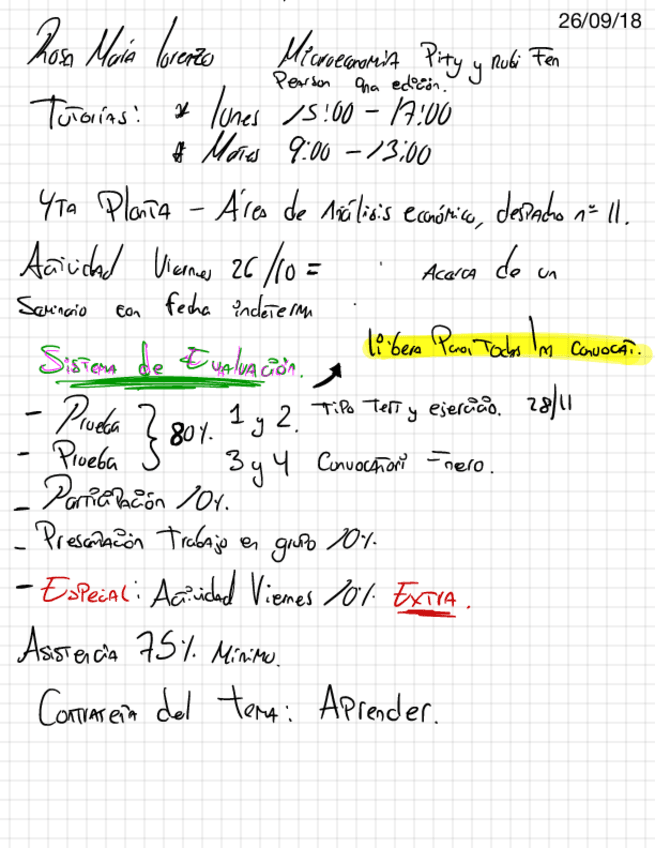 26/09/18
Rosa María Lorenzo
Microeconomia Pity y Rubi Fen
Pearson 9na edción.
Tutorías: * lunes 15:00 – 17:00
* Martes 9:00 – 13:00
4Ta Planta – Área de Análisis económico, despacho nº 11.
Actividad Viernes 26/10 = Acerca de un
Seminario con fecha indeterm
Sistema de Evaluación.
libera Para Todas Convocat.
- Prueba } 80%. 1 y 2. Tipo Test y ejercicio. 28/11
- Prueba 3 y 4 Enero.
- Participación 10%.
- Presentación Trabajo en grupo 10%.
- Especial: Actividad Viernes 10% Extra.
Asistencia 75% Mínimo.
del tema: Aprender.